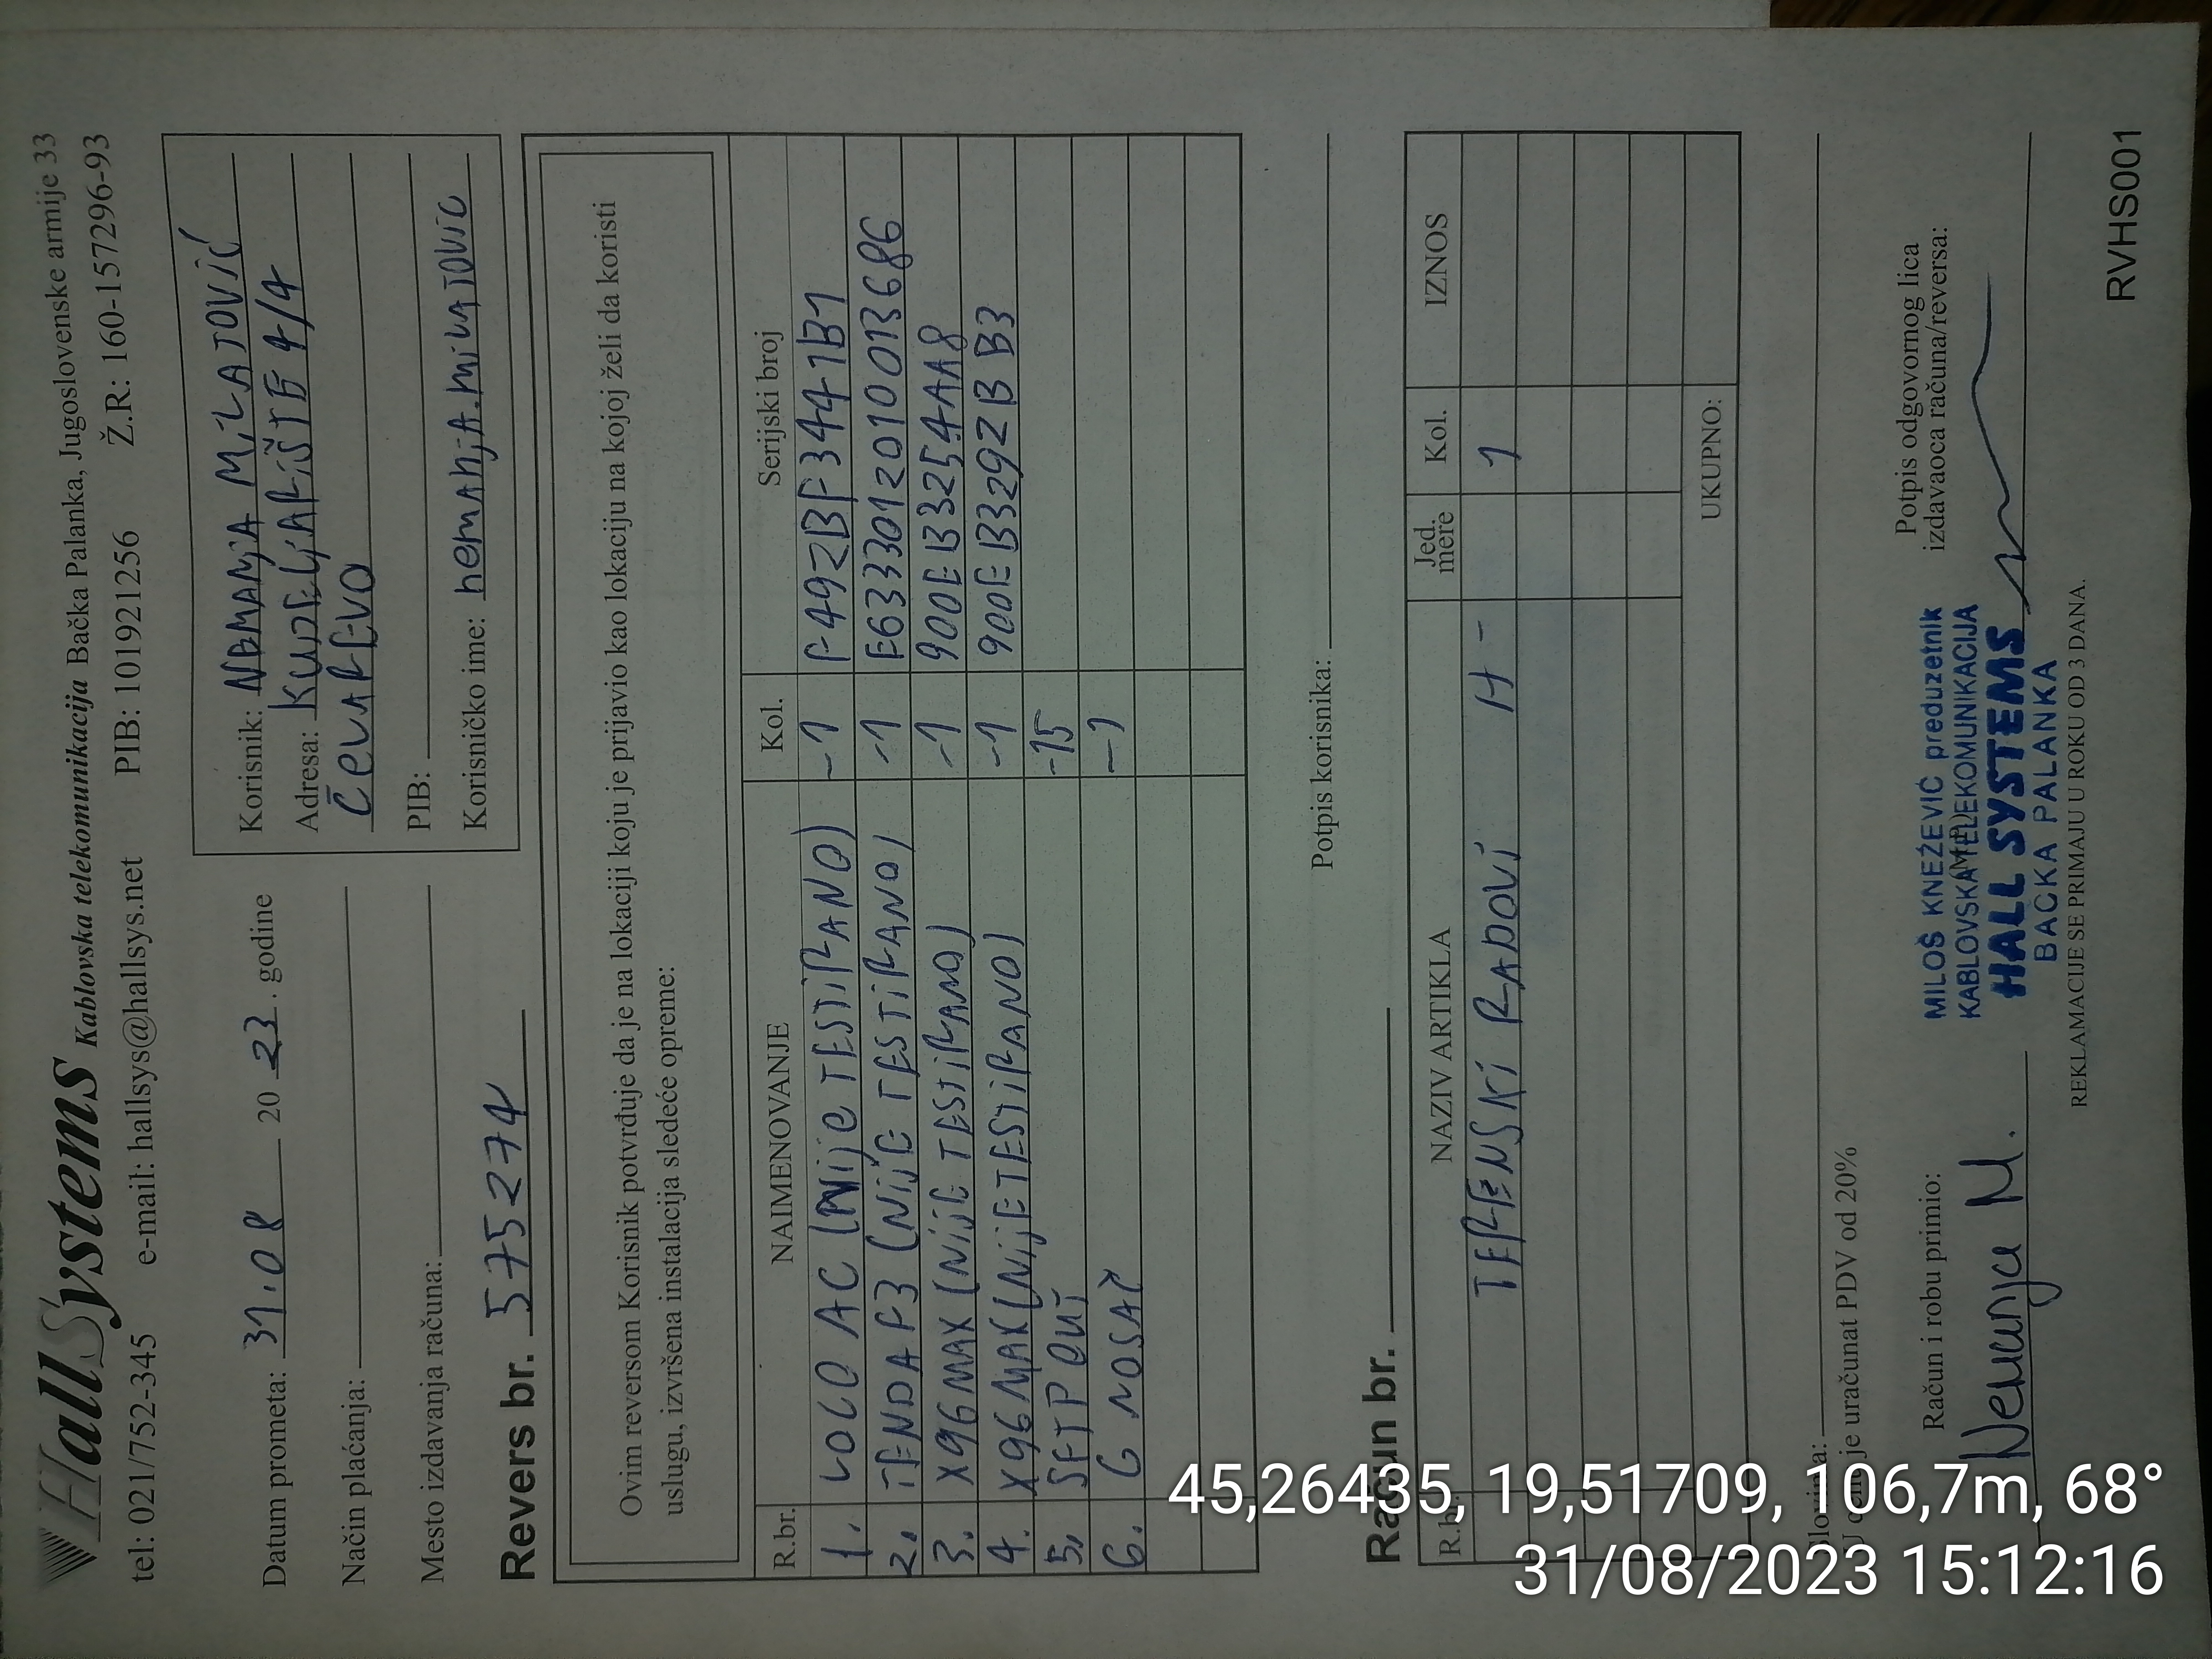 HallSystems Kablovska telekomunikacija Bačka Palanka, Jugoslovenske armije 33
tel: 021/752-345 e-mail: hallsys@hallsys.net PIB: 101921256 Ž.R: 160-157296-93
Datum prometa: 31.08 20 23. godine
Način plaćanja:
Mesto izdavanja računa:
Korisnik: NEMANJA MILATOVIĆ
Adresa: KUDELJARIŠTE 4/4
ČELAREVO
PIB:
Korisničko ime: nemanja.milatovic
Revers br. 575274
Ovim reversom Korisnik potvrđuje da je na lokaciji koju je prijavio kao lokaciju na kojoj želi da koristi
uslugu, izvršena instalacija sledeće opreme:
R.br. NAIMENOVANJE Kol. Serijski broj
1. LOCO AC (NIJE TESTIRANO) -1 F492BF3441B1
2. TENDA F3 (NIJE TESTIRANO) -1 E6333012010013686
3. X96MAX (NIJE TESTIRANO) -1 900EB3254AA8
4. X96MAX (NIJE TESTIRANO) -1 900EB3292BB3
5. SFTP OUT -15
6. G NOSAČ -1
Potpis korisnika:
Račun br.
R.br. NAZIV ARTIKLA Jed. mere Kol. IZNOS
TERENSKI RADOVI H- 1
UKUPNO:
Slovima:
U cenu je uračunat PDV od 20%
Račun i robu primio:
Nemanja M.
MILOŠ KNEŽEVIĆ preduzetnik
KABLOVSKA TELEKOMUNIKACIJA
HALL SYSTEMS
BAČKA PALANKA
Potpis odgovornog lica
izdavaoca računa/reversa:
REKLAMACIJE SE PRIMAJU U ROKU OD 3 DANA.
RVHS001
45,26435, 19,51709, 106,7m, 68°
31/08/2023 15:12:16